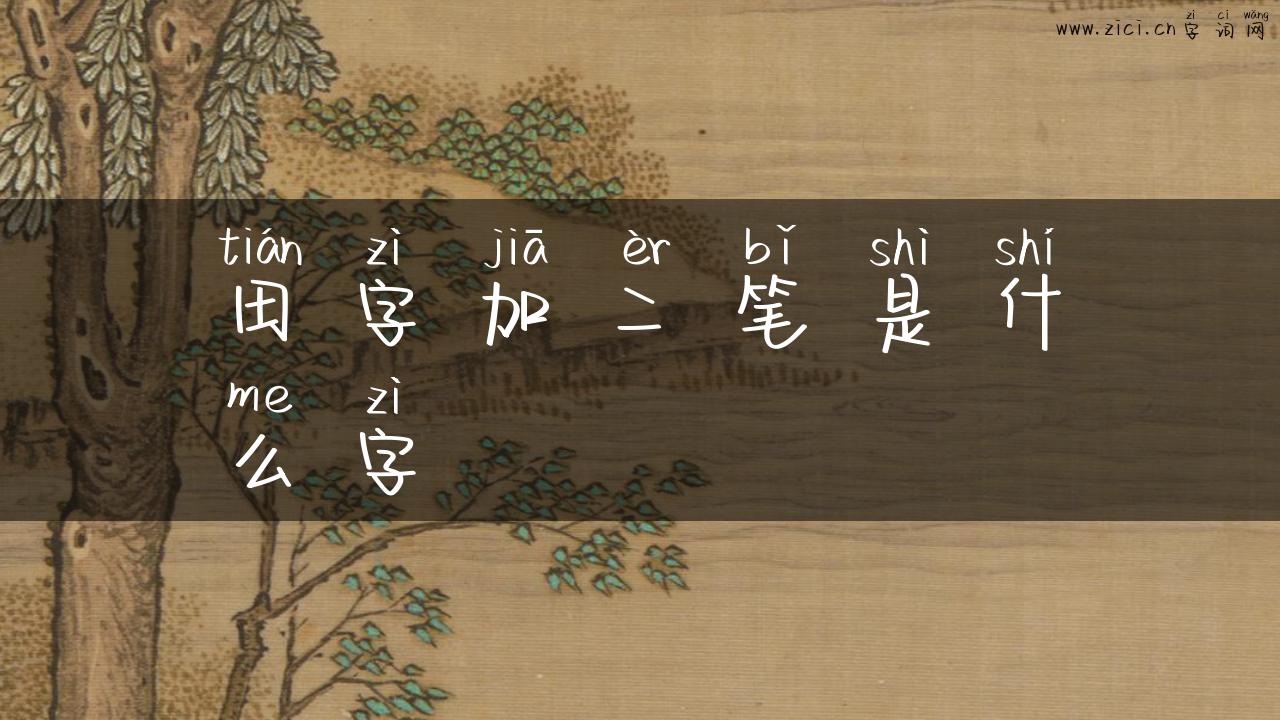 zì cí wǎng
www.zici.cn 字词网
tián zì jiā èr bǐ shì shí
田字加二笔是什
me zì
么字